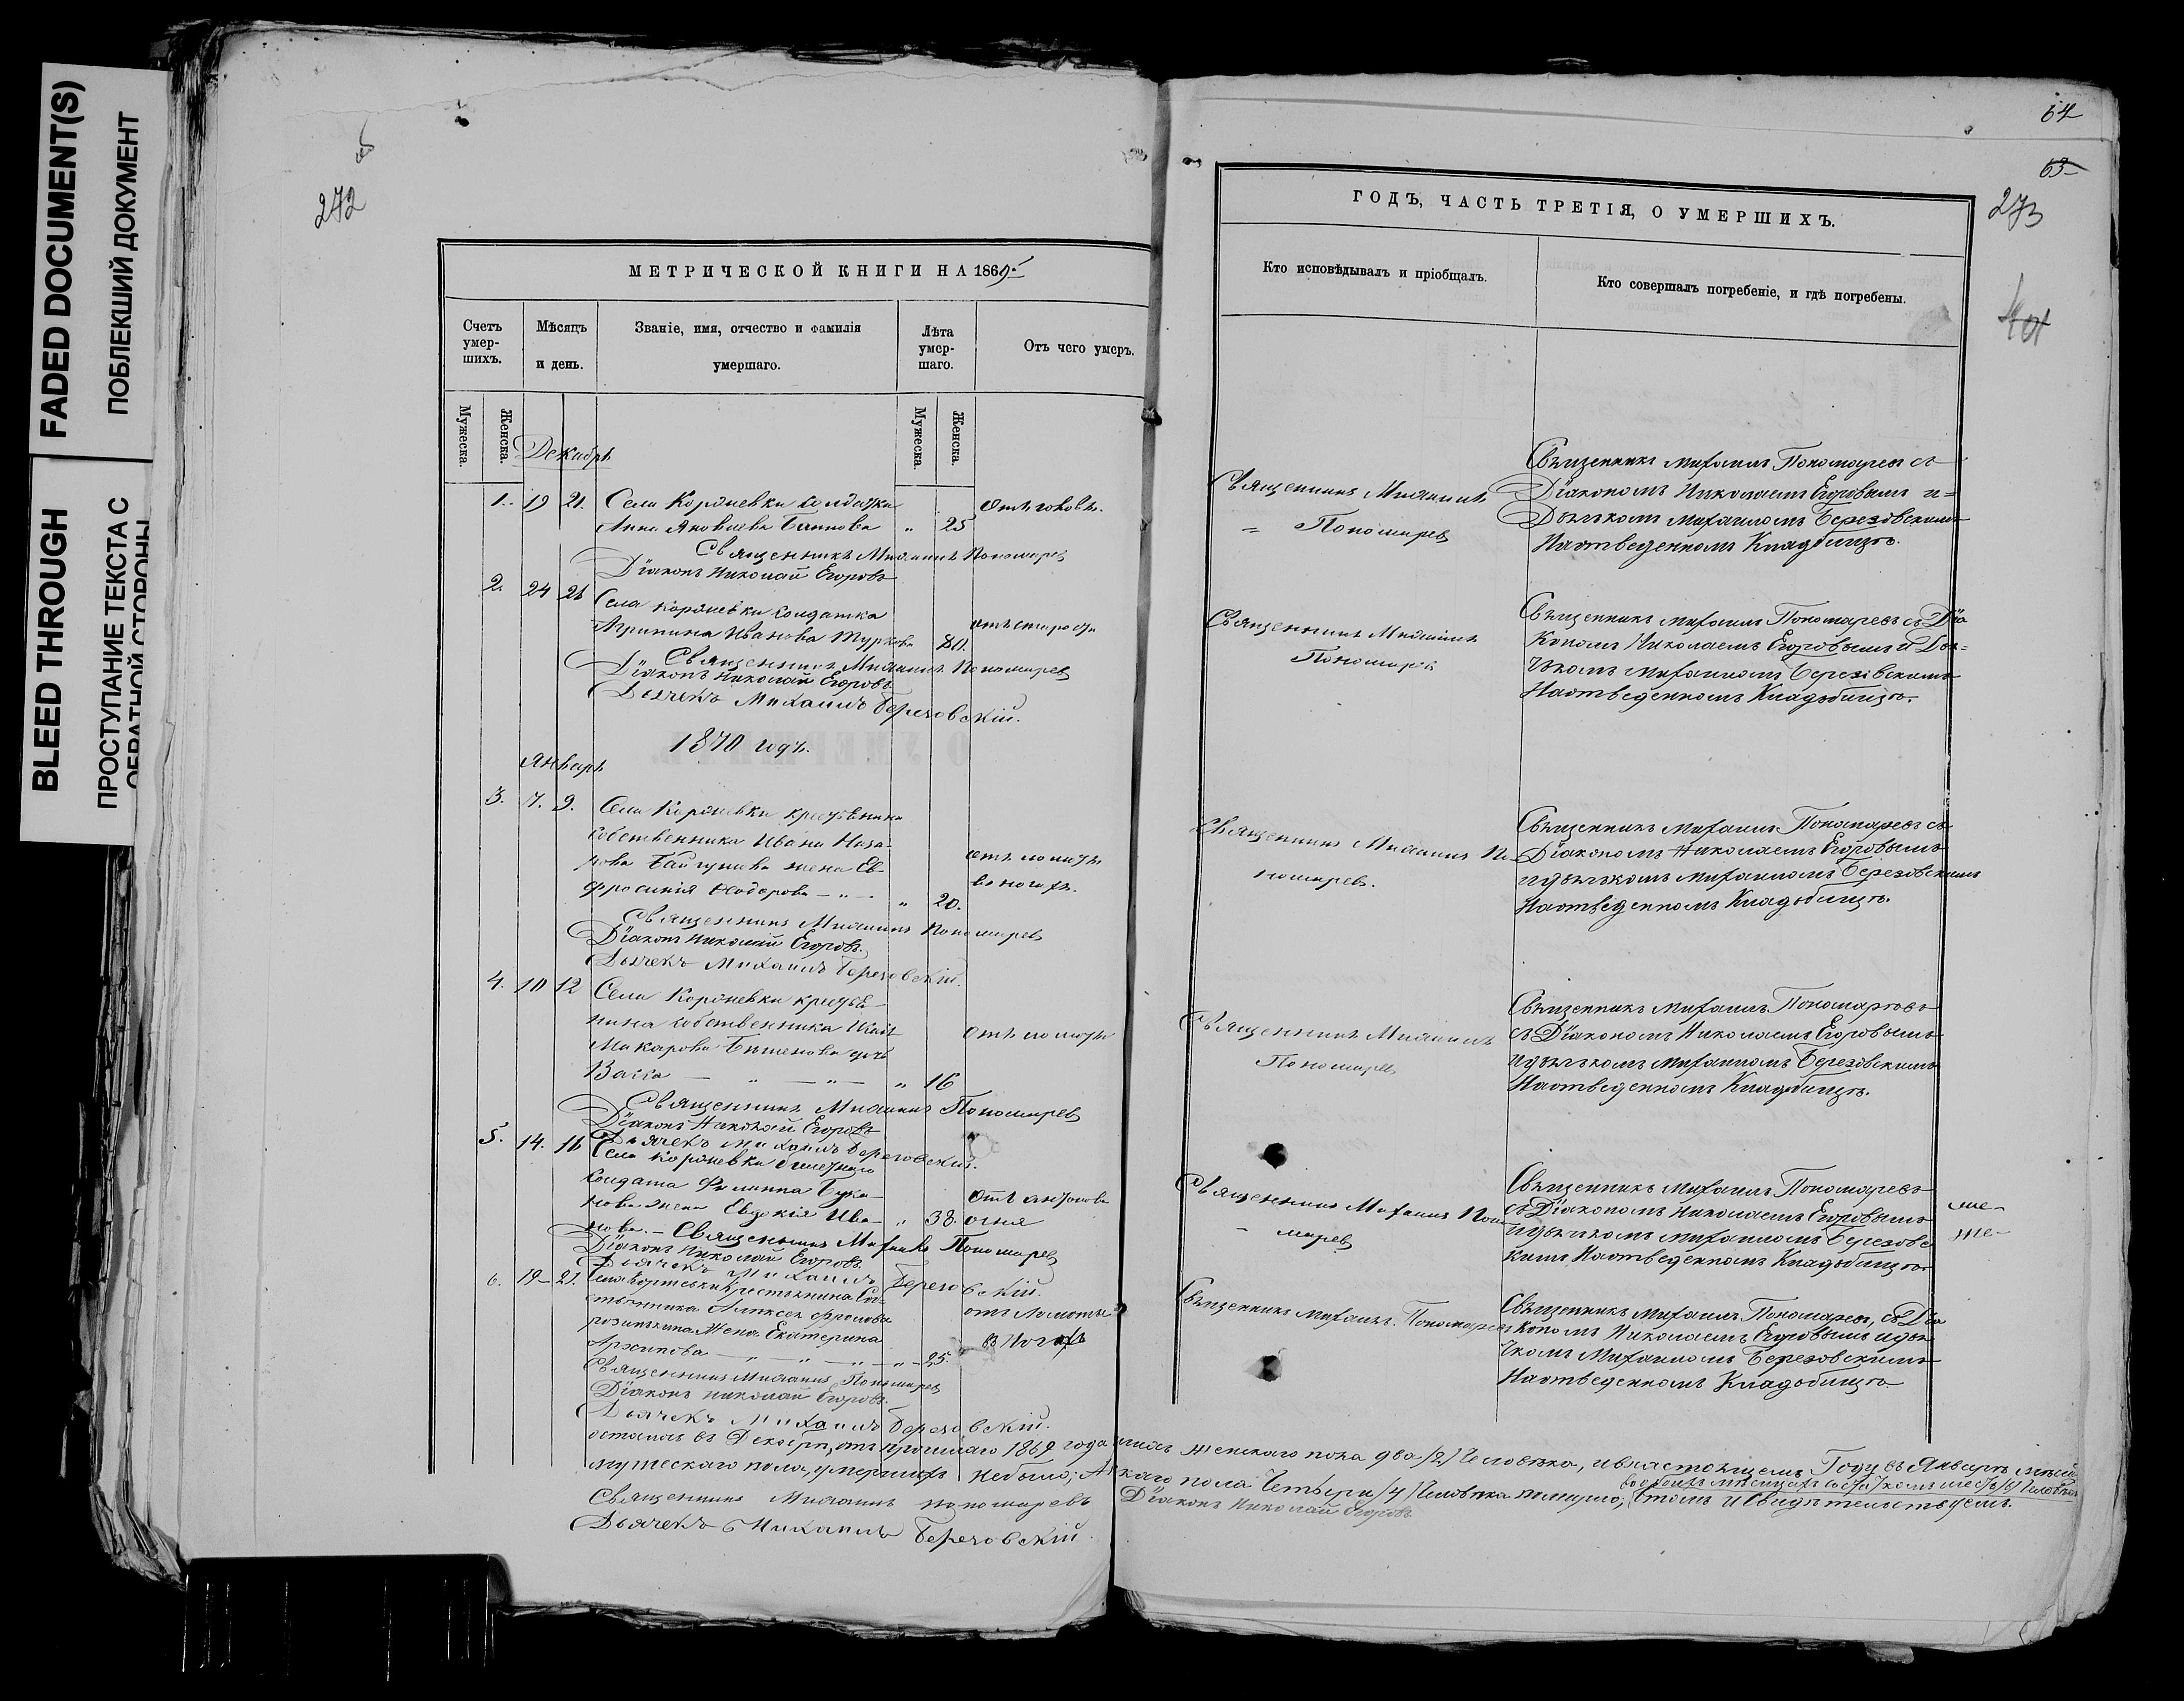 FADED DOCUMENT(S)
ПОБЛЕКШИЙ ДОКУМЕНТ
BLEED THROUGH
ПРОСТУПАНИЕ ТЕКСТА С
ОБРАТНОЙ СТОРОНЫ
272
МЕТРИЧЕСКОЙ КНИГИ НА 1869
Счетъ умер-шихъ.
Мѣсяцъ и день.
Званіе, имя, отчество и фамилія умершаго.
Лѣта умер-шаго.
Отъ чего умеръ.
Мужеска.
Женска.
Мужеска.
Женска.
Декабрь
1. 19 21. Села Короневки солдатка
Анна Яковлева „ 25
Священникъ Михаилъ Пономарев
Діаконъ Николай Егоровъ
2. 24 26 Села Короневки солдатка
Иванова 80.
Священникъ Михаилъ Пономарев
Діаконъ Николай Егоровъ
Дьячекъ Михаилъ Березовскій.
1870 годъ.
Январь
3. 7. 9. Села Короневки крестьянина
собственника Ивана Наза-
рова жена Ев-
фросинія Федорова „ 20.
Священникъ Михаилъ Пономарев
Діаконъ Николай Егоровъ.
Дьячекъ Михаилъ Березовскій.
4. 10 12 Села Короневки крестья-
нина собственника
Макарова дочь
„ 16
Священникъ Михаилъ Пономарев
Діаконъ Николай Егоровъ
Дьячекъ Михаилъ Березовскій.
5. 14. 16 Села Короневки билетнаго
солдата Филиппа
нова жена Евдокія Ива- „ 38. огня
нова. — Священникъ Михаилъ Пономарев
Діаконъ Николай Егоровъ
Дьячекъ Михаилъ Березовскій.
6. 19 21. крестьянина Соб-
ственника Алексея Фролова
жена Екатерина
Архипова 25.
Священникъ Михаилъ Пономарев
Діаконъ Николай Егоровъ.
Дьячекъ Михаилъ Березовскій.
64
63
273
ГОДЪ, ЧАСТЬ ТРЕТІЯ, О УМЕРШИХЪ.
Кто исповѣдывалъ и пріобщалъ.
Кто совершалъ погребеніе, и гдѣ погребены.
Священникъ Михаилъ
Пономарев
Священникъ Михаилъ Пономарев съ
Діакономъ Николаемъ Егоровымъ и
Дьячкомъ Михаиломъ Березовскимъ
На отведенномъ Кладбищѣ.
Священникъ Михаилъ
Пономарев
Священникъ Михаилъ Пономаревъ съ Діа-
кономъ Николаемъ Егоровымъ и Дья-
чкомъ Михаиломъ Березовскимъ
На отведенномъ Кладбищѣ.
Священникъ Михаилъ По-
номарев.
Священникъ Михаилъ Пономаревъ съ
Діакономъ Николаемъ Егоровымъ
и дьячкомъ Михаиломъ Березовскимъ
На отведенномъ Кладбищѣ.
Священникъ Михаилъ
Пономарев
Священникъ Михаилъ Пономаревъ
съ Діакономъ Николаемъ Егоровымъ
и дьячкомъ Михаиломъ Березовскимъ
На отведенномъ Кладбищѣ.
Священникъ Михаилъ Поно-
марев
Священникъ Михаилъ Пономаревъ
съ Діакономъ Николаемъ Егоровымъ
и дьячкомъ Михаиломъ Березовс
кимъ На отведенномъ Кладбищѣ
Священникъ Михаилъ Пономаревъ
Священникъ Михаилъ Пономарев, съ Діа
кономъ Николаемъ Егоровымъ и дья
чкомъ Михаиломъ Березовскимъ
На отведенномъ Кладбищѣ
съ Декабря, отъ прошлаго 1869 года женскаго пола два /2/ Человѣка, и въ настоящемъ Году въ Январѣ
мужескаго пола, умершихъ Небыло; каго пола Четыри /4/ Человѣка померло; въ томъ и Свидѣтельствуемъ.
Священникъ Михаилъ Пономаревъ Діаконъ Николай Егоровъ.
Дьячекъ Михаилъ Березовскій.